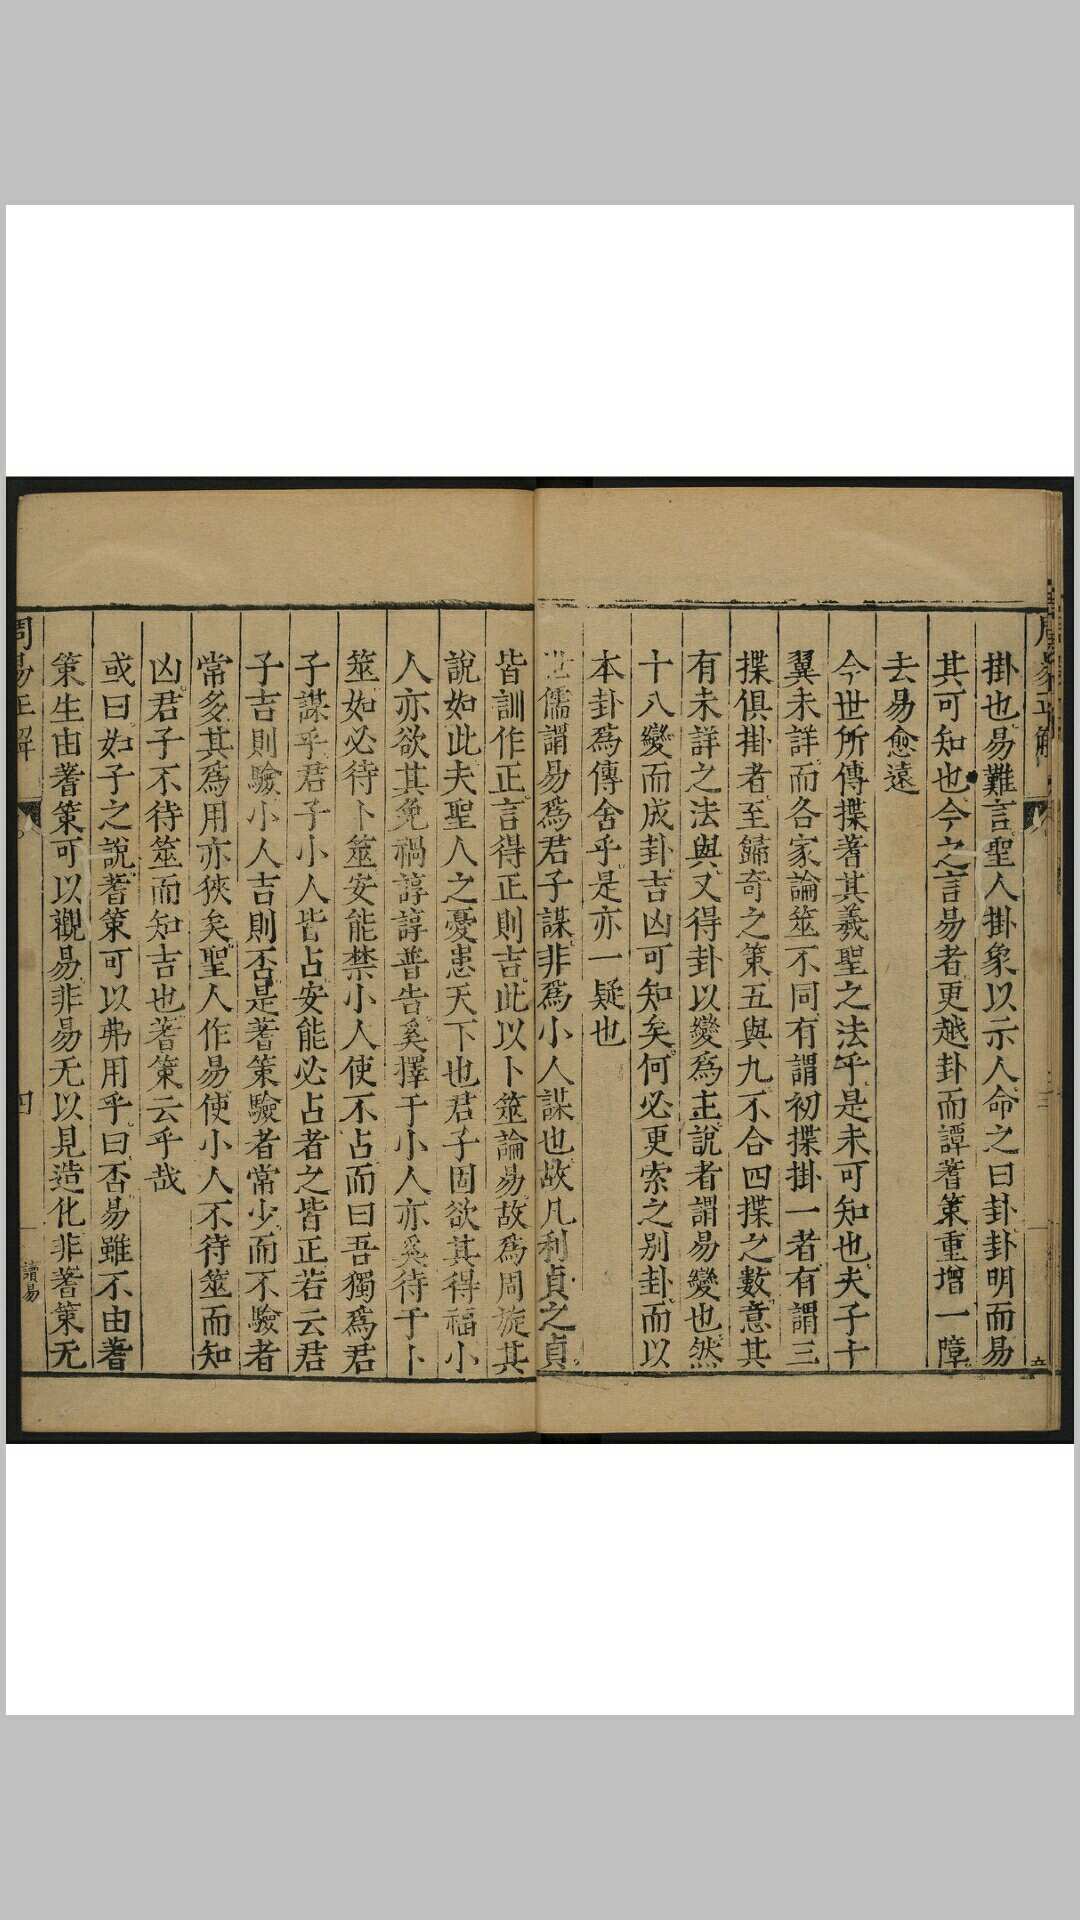 掛也易難言聖人掛象以示人命之曰卦卦明而易
其可知也今之言易者更越卦而譚蓍策重增一障
去易愈遠
今世所傳揲蓍其羲聖之法乎是未可知也夫子十
翼未詳而各家論筮不同有謂初揲掛一者有謂三
揲俱掛者至歸奇之策五與九不合四揲之數意其
有未詳之法與又得卦以變爲主說者謂易變也然
十八變而成卦吉凶可知矣何必更索之别卦而以
本卦爲傳舍乎是亦一疑也
世儒謂易爲君子謀非爲小人謀也故凡利貞之貞
皆訓作正言得正則吉此以卜筮論易故爲周旋其
說如此夫聖人之憂患天下也君子固欲其得福小
人亦欲其免禍諄諄普告奚擇于小人亦奚待于卜
筮如必待卜筮安能禁小人使不占而曰吾獨爲君
子謀乎君子小人皆占安能必占者之皆正若云君
子吉則驗小人吉則否是蓍策驗者常少而不驗者
常多其爲用亦狹矣聖人作易使小人不待筮而知
凶君子不待筮而知吉也蓍策云乎哉
或曰如子之說蓍策可以弗用乎曰否易雖不由蓍
策生由蓍策可以觀易非易无以見造化非蓍策无
周易正解
四
讀易